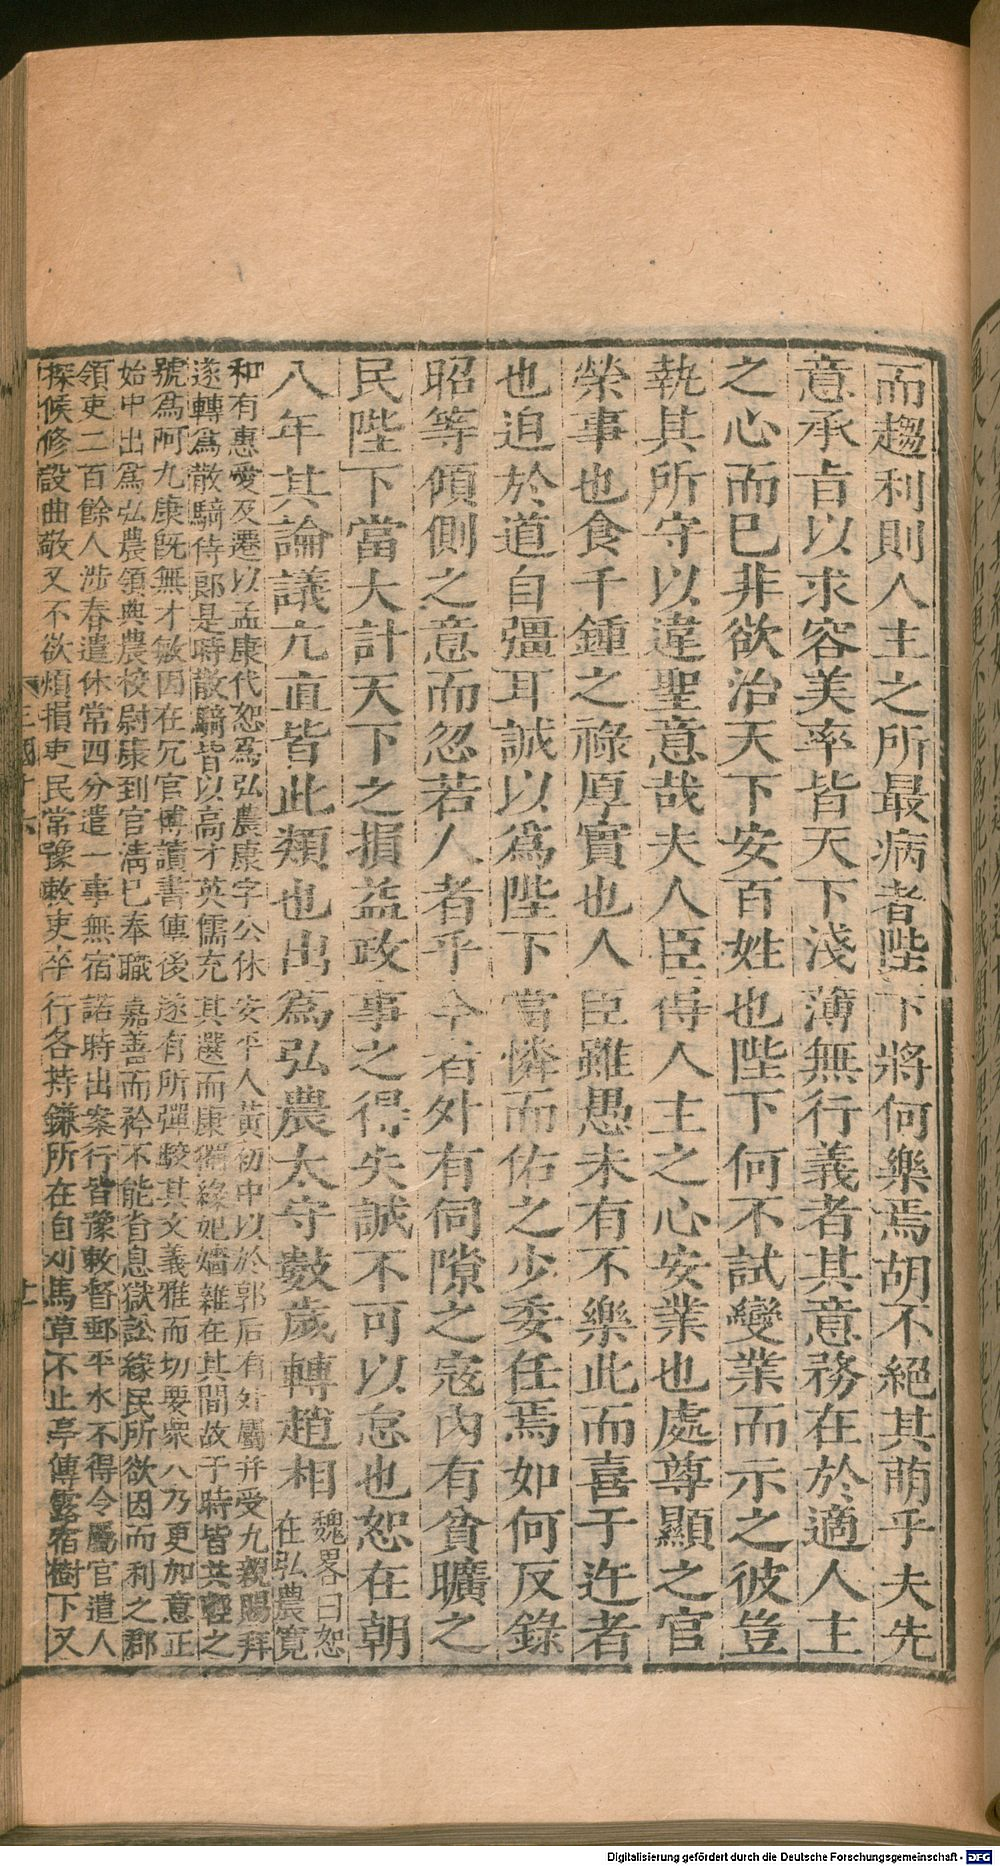 而趨利則人主之所最病者陛下將何樂焉胡不絕其萌乎夫先
意承旨以求容美率皆天下淺薄無行義者其意務在於適人主
之心而已非欲治天下安百姓也陛下何不試變業而示之彼豈
執其所守以違聖意哉夫人臣得人主之心安業也處尊顯之官
榮事也食千鍾之祿厚實也人臣雖愚未有不樂此而喜于迕者
也迫於道自彊耳誠以爲陛下當憐而佑之少委任焉如何反錄
昭等傾側之意而忽若人者乎今者外有伺隙之寇內有貧曠之
民陛下當大計天下之損益政事之得失誠不可以怠也恕在朝
八年其論議亢直皆此類也出爲弘農太守數歲轉趙相
魏畧曰恕
在弘農寬
和有惠愛及遷以孟康代恕爲弘農康字公休安平人黃初中以於郭后有外屬并受九親賜拜
遂轉爲散騎侍郎是時散騎皆以高才英儒充其選而康獨緣妃嬙雜在其間故于時皆共輕之
號爲阿九康旣無才敏因在冗官博讀書傳後遂有所彈駮其文義雅而切要衆人乃更加意正
始中出爲弘農領典農校尉康到官淸已奉職嘉善而矜不能省息獄訟緣民所欲因而利之郡
領吏二百餘人涉春遣休常四分遣一事無宿諾時出案行皆豫敕督郵平水不得令屬官遣人
探候修設曲敬又不欲煩損吏民常豫敕吏卒行各持鎌所在自刈馬草不止亭傳露宿樹下又
三國十六
十一
Digitalisierung gefördert durch die Deutsche Forschungsgemeinschaft - DFG